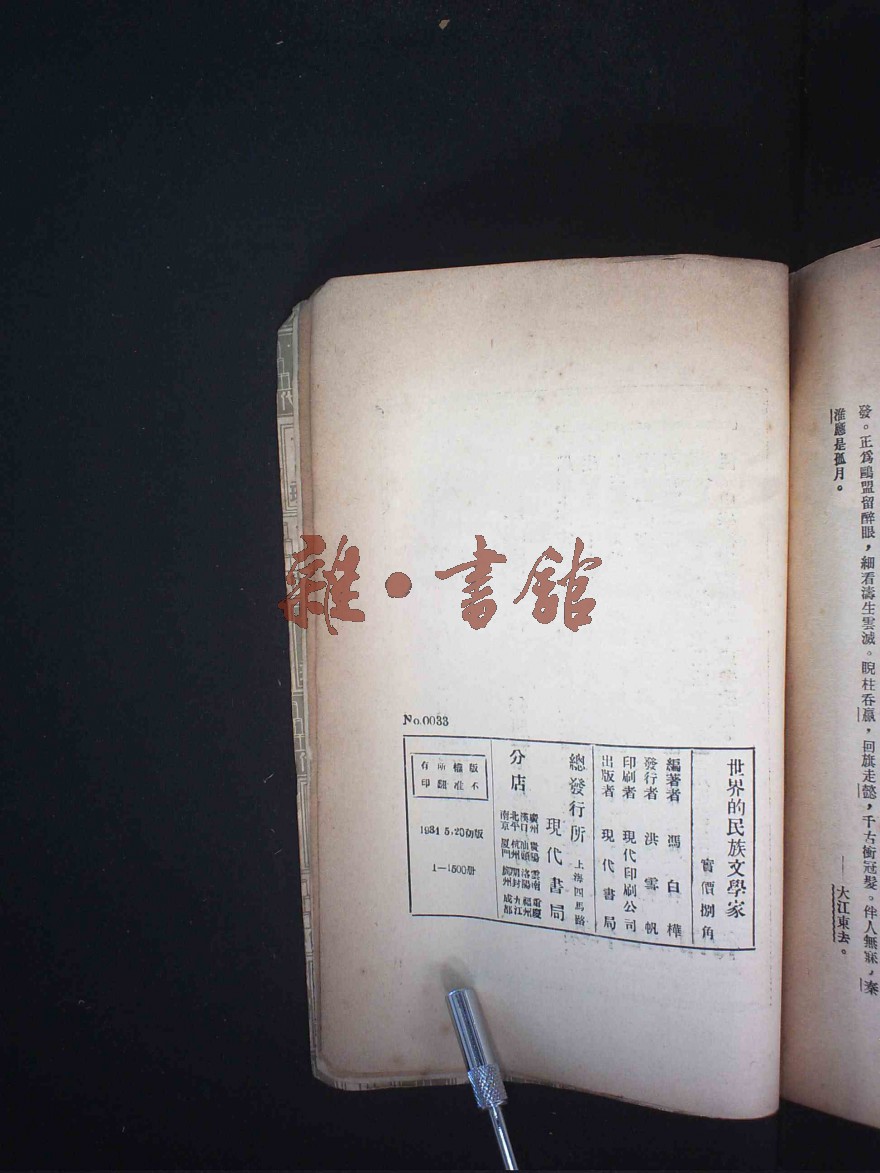 發。正爲鷗盟留醉眼，細看濤生雲滅。睨柱吞嬴，回旗走懿，千古衝冠髮。伴人無寐，秦
淮應是孤月。
——大江東去。
雜·書館
No.0033
世界的民族文學家
實價捌角
編著者 馮白樺
發行者 洪雪帆
印刷者 現代印刷公司
出版者 現代書局
總發行所 上海四馬路
現代書局
分店
廣州 貴陽 雲南 重慶
漢口 汕頭 洛陽 福州
北平 杭州 開封 九江
南京 廈門 成都
版權所有
不准翻印
1934 5.20初版
1—1500册